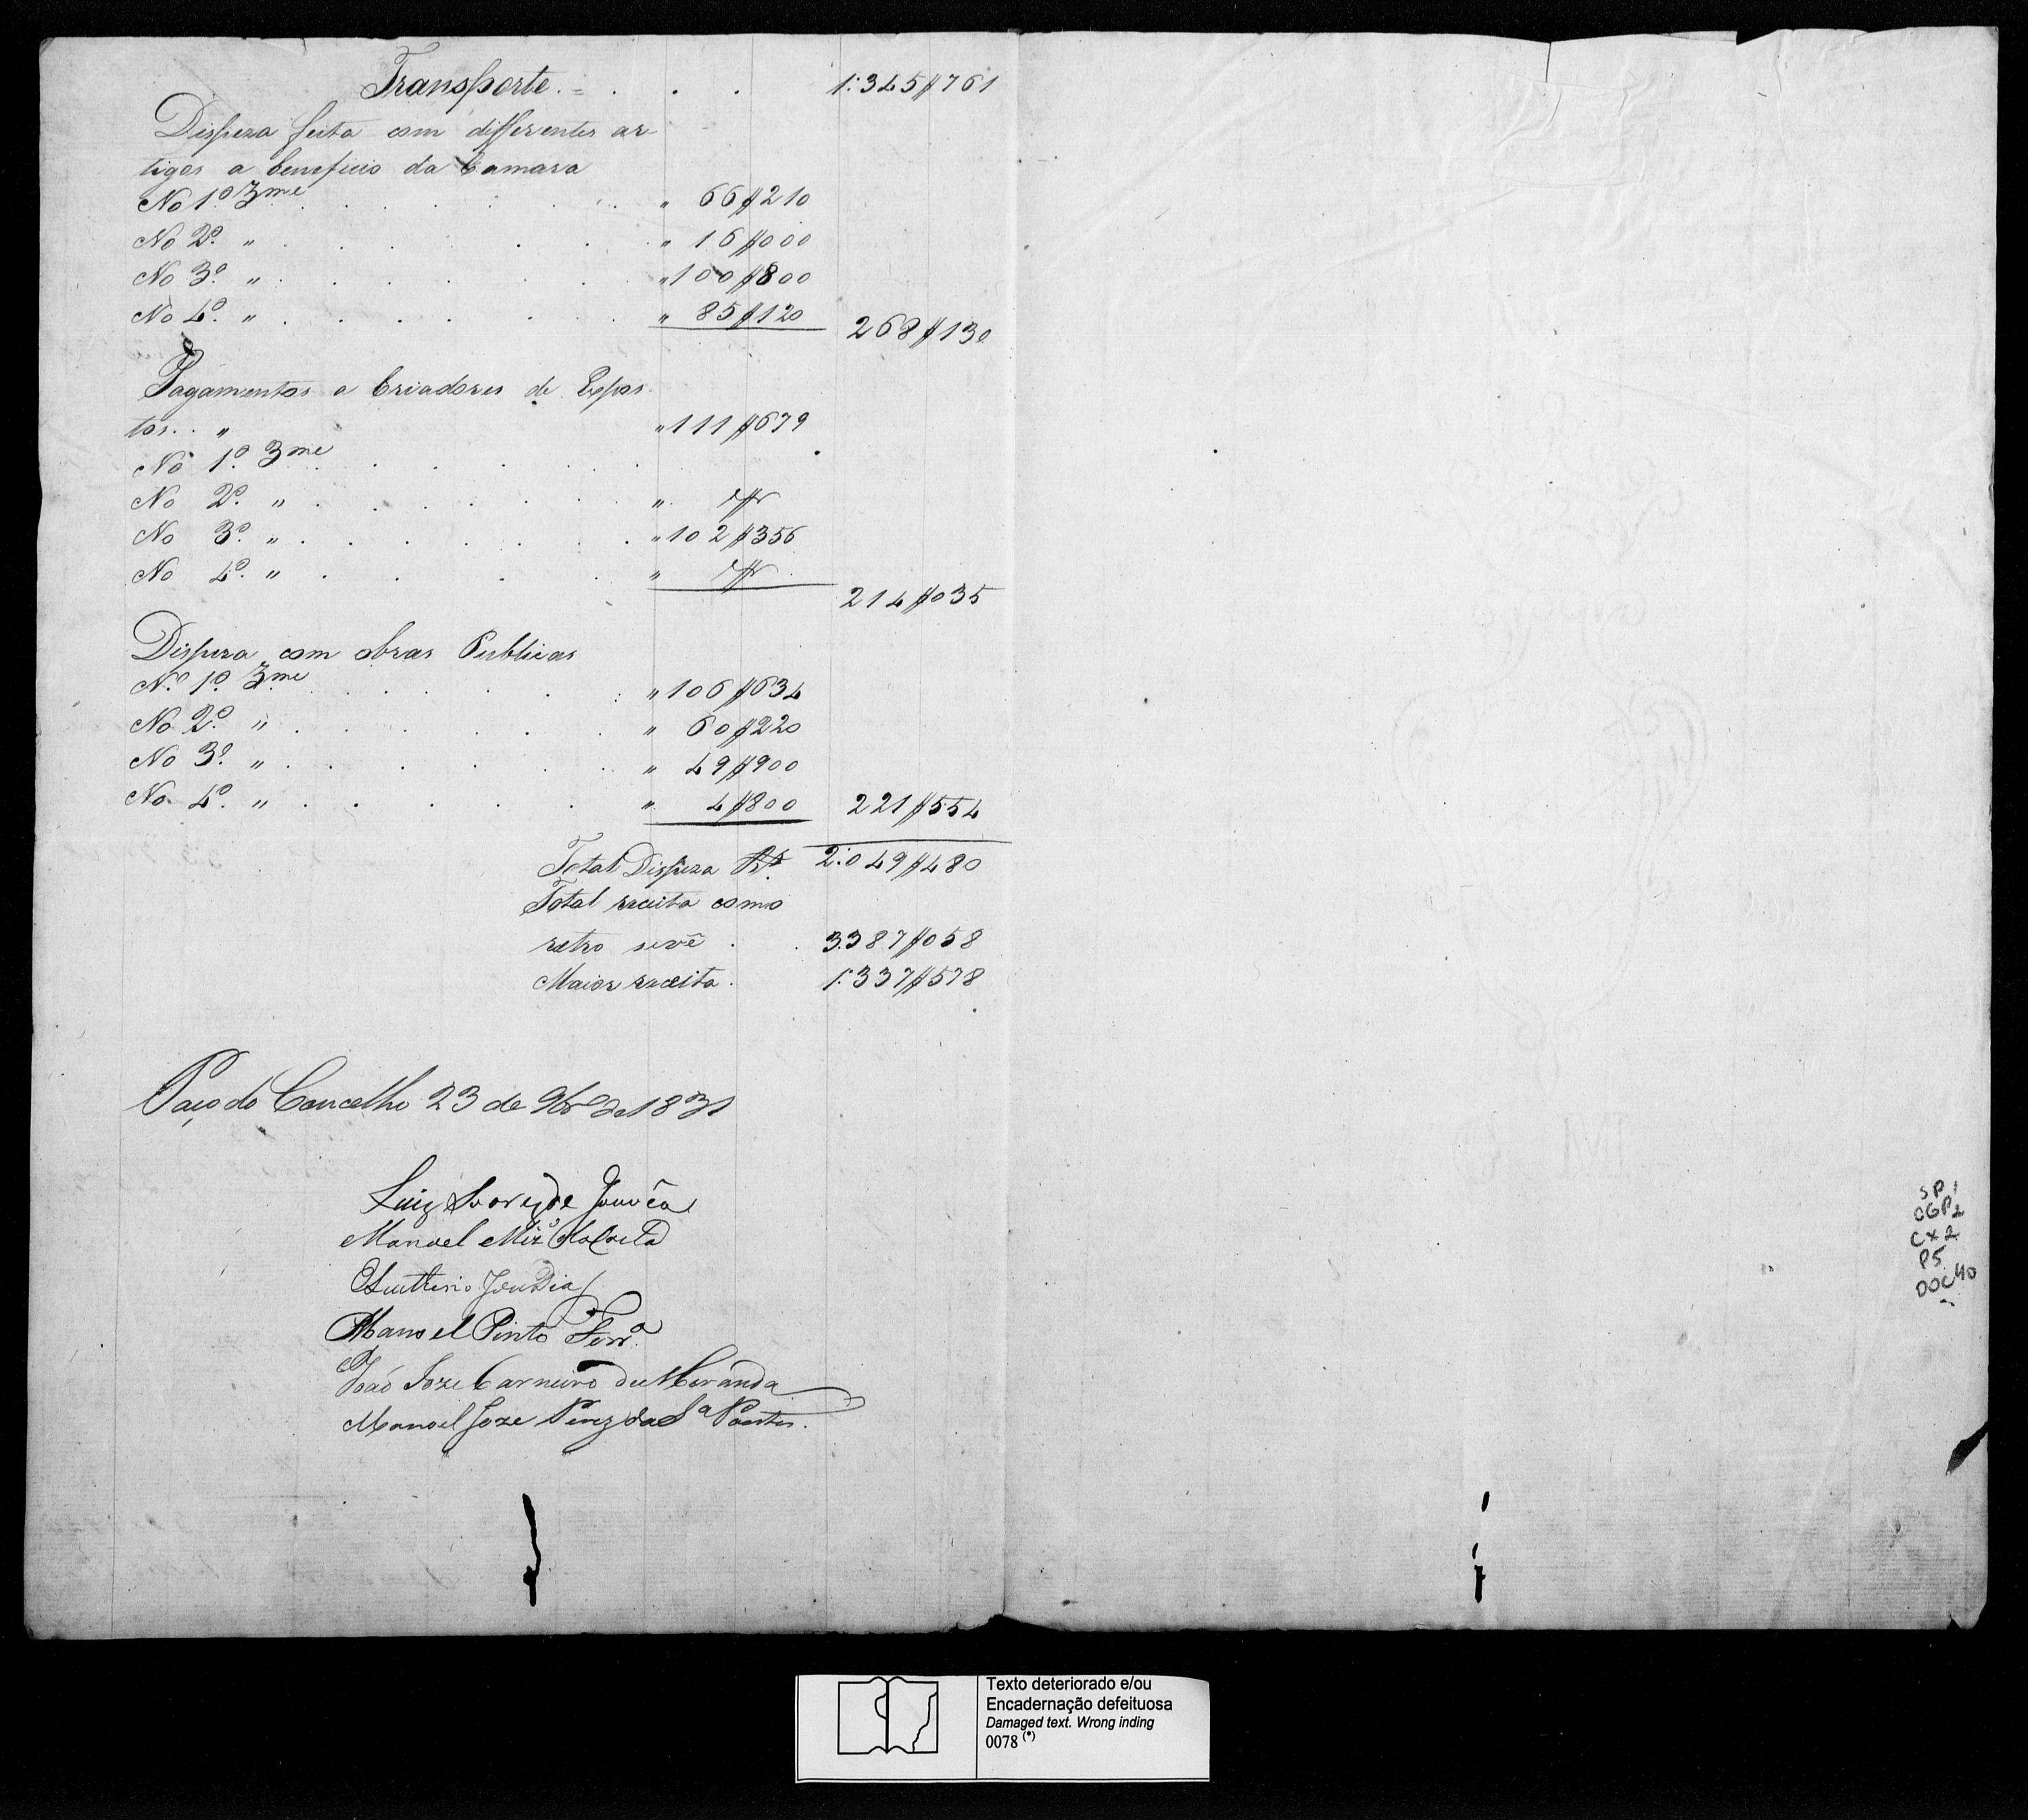 Transporte . = . . . 1:345$761
Dispeza feita com differentes ar-
tigos a beneficio da Camara
No 1.º 3me . . . . . . " 66$210
No 2.º " . . . . . . " 16$000
No 3.º " . . . . . . " 100$800
No 4.º " . . . . . . " 85$120 268$130
Pagamentos a Criadores de Expos-
tos . . " " 111$679
No 1.º 3me . . . . . .
No 2.º " . . . . . . "
No 3.º " . . . . . . " 102$356
No 4.º " . . . . "
214$035
Dispeza com obras Publicas
No 1.º 3me . . . . . . " 106$634
No 2.º " . . . . . . " 60$220
No 3.º " . . . . . . " 49$900
No 4.º " . . . . . " 4$800 221$554
Total Dispeza Rs. 2:049$480
Total receita como
retro se vê . . 3.387$058
Maior receita . 1:337$578
Paço do Concelho 23 de 9bro de 1831
Luiz de Gouvêa
Manoel
Manoel Pinto Ferra
João Joze Carneiro de Meranda
Manoel Joze da Sa
SP1
OGP2
CX2
P5
DOC40
Texto deteriorado e/ou
Encadernação defeituosa
Damaged text. Wrong inding
0078 (*)